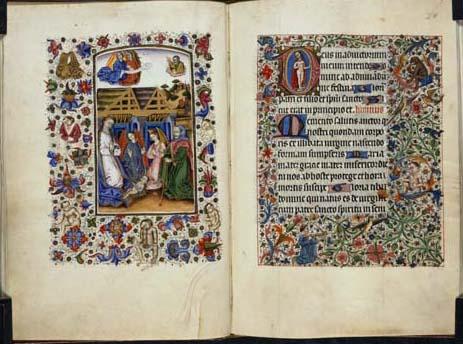 Deus in adiutorium
meum intende
mine ad adiuua
me festina
Pam et filio et spiritui sancto
cut erat in principio et
Memento salutis auctor q
nostri quondam corpo
ris ex illibata virgine nascendo
formam sumpseris Maria
mater gracie mater misericordie
nos ab hoste protege et hora
mortis suscipe Gloria tibi
domine qui natus es de virgine
cum patre sancto spiritu in semp